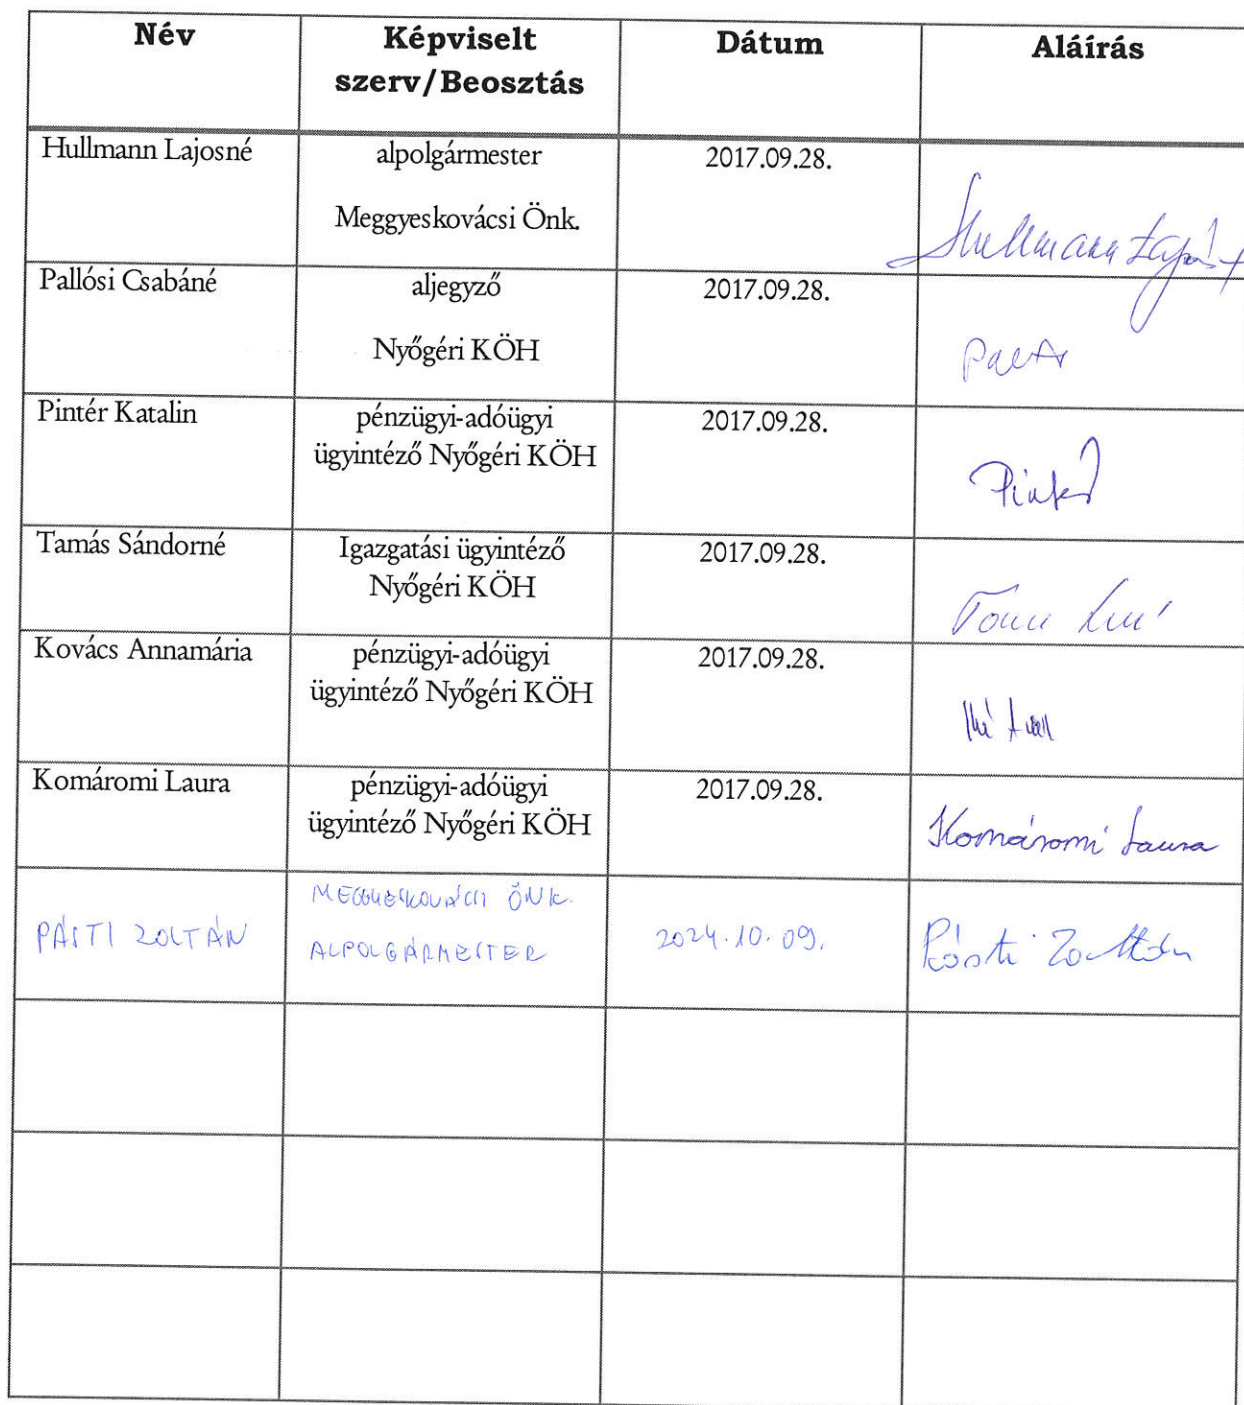 Név
Képviselt
szerv/Beosztás
Dátum
Aláírás
Hullmann Lajosné
alpolgármester
Meggyeskovácsi Önk.
2017.09.28.
Hullmann Lajosné
Pallósi Csabáné
aljegyző
Nyőgéri KÖH
2017.09.28.
Pintér Katalin
pénzügyi-adóügyi
ügyintéző Nyőgéri KÖH
2017.09.28.
Pintér
Tamás Sándorné
Igazgatási ügyintéző
Nyőgéri KÖH
2017.09.28.
Kovács Annamária
pénzügyi-adóügyi
ügyintéző Nyőgéri KÖH
2017.09.28.
Komáromi Laura
pénzügyi-adóügyi
ügyintéző Nyőgéri KÖH
2017.09.28.
Komáromi Laura
PÁSTI ZOLTÁN
MEGGYESKOVÁCSI ÖNK.
ALPOLGÁRMESTER
2024.10.09.
Pásti Zoltán